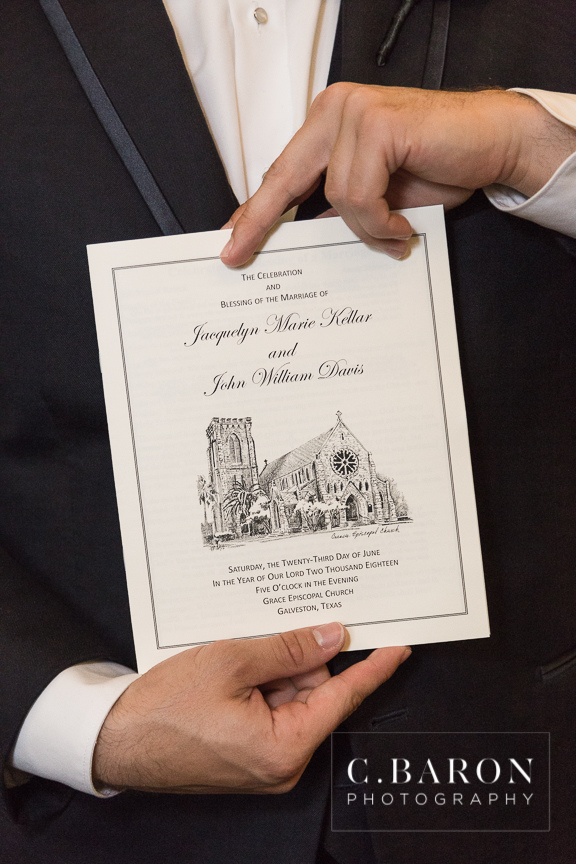 The Celebration
and
Blessing of the Marriage of
Jacquelyn Marie Kellar
and
John William Davis
Grace Episcopal Church
Saturday, the Twenty-Third Day of June
In the Year of Our Lord Two Thousand Eighteen
Five O'clock in the Evening
Grace Episcopal Church
Galveston, Texas
C. BARON
PHOTOGRAPHY